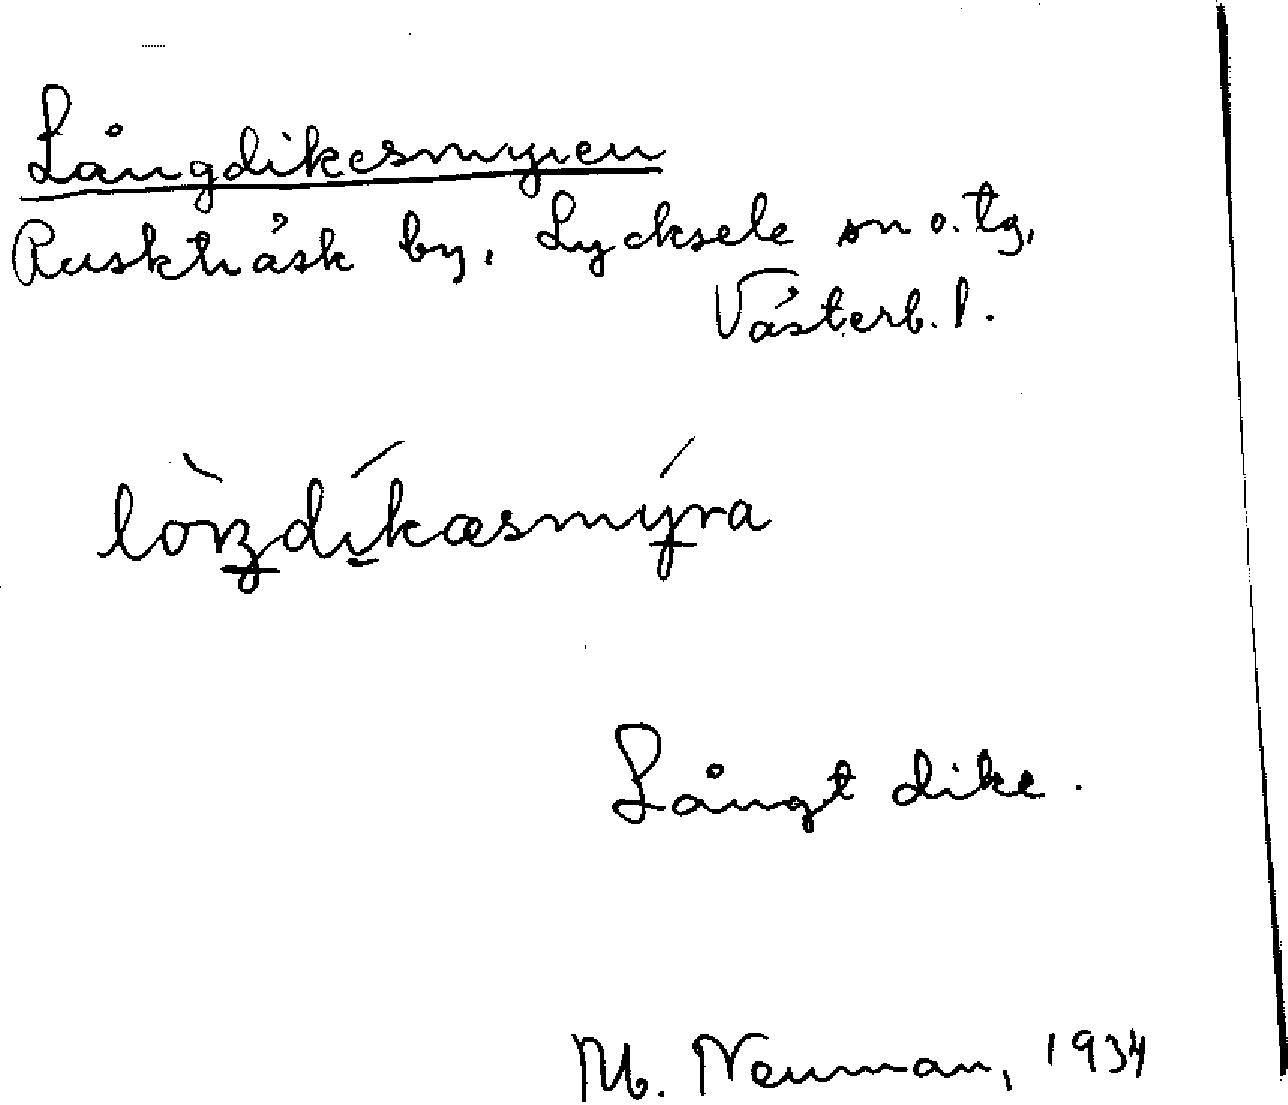 Långdikesmyren
Ruskträsk by, Lycksele sn o. tg,
Västerb. l.
Långt dike.
M. Neuman, 1934